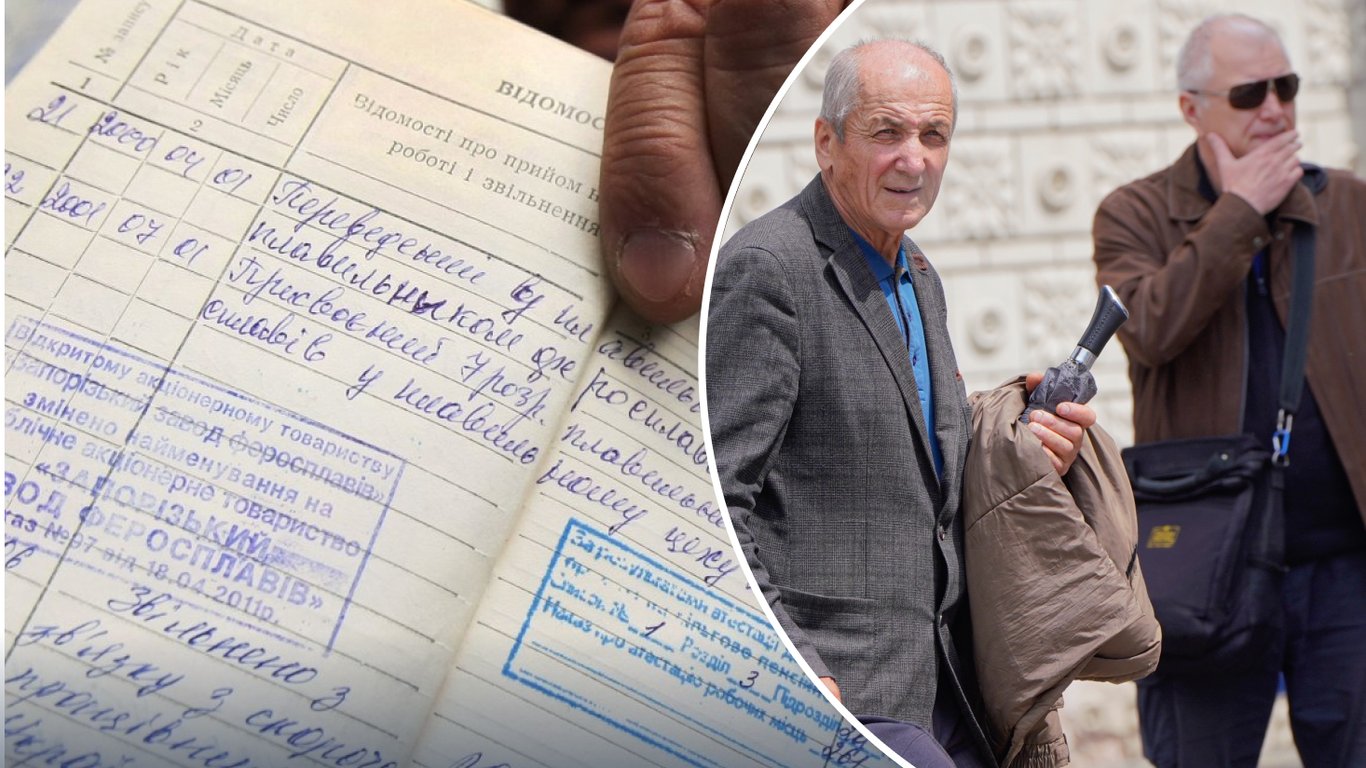 ВІДОМОС
№ запису
Дата
Рік
Місяць
Число
Відомості про прийом н
роботі і звільнення
1
2
21 2000 04 01 Переведений у пл
плавильником фе
2001 07 01 Присвоєний 4 розр.
сплавів у плавиль
авиль
росплав
плавильн
ному цеху
Відкритому акціонерному товариству
«Запорізький завод феросплавів»
змінено найменування на
блічне акціонерне товариство
«ЗАПОРІЗЬКИЙ
ВОД ФЕРОСПЛАВІВ»
каз №97 від 18.04.2011р.
За результатами атестації
пільгове пенсій
Список № 1 Розділ 3 Підрозділ
Наказ про атестацію робочих місць
Звільнено з
зв'язку з скороче
працівник